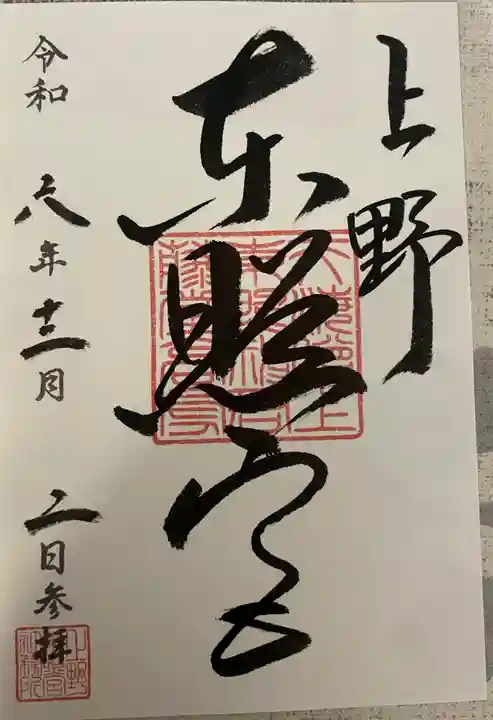 上野
東照宮
令和六年十二月二日参拝